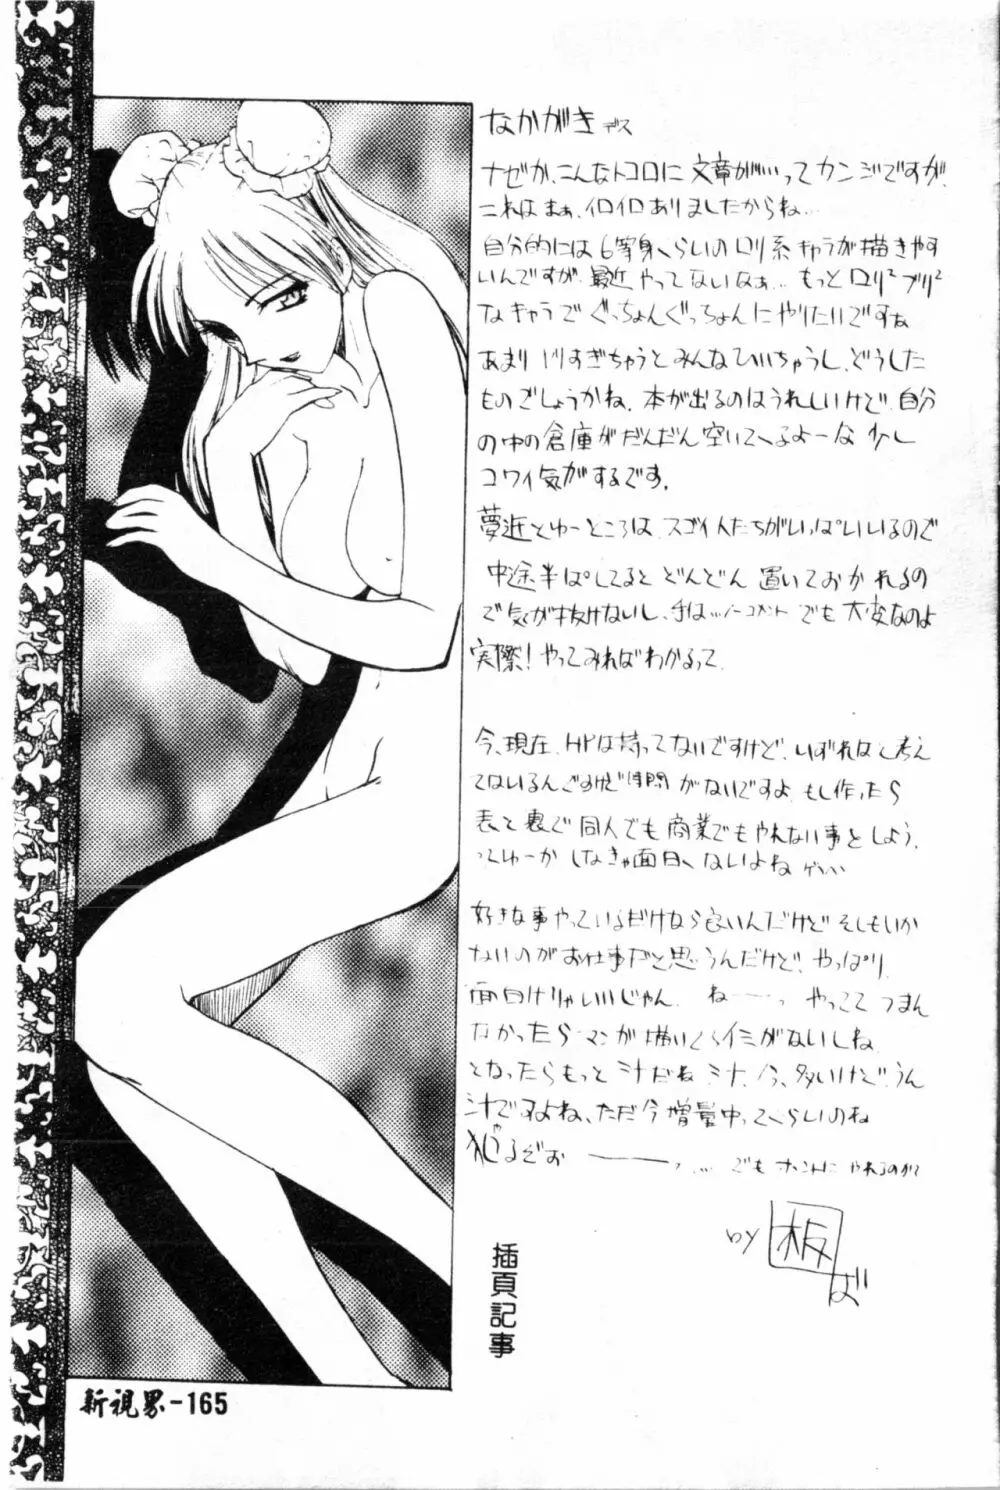 なかがきデス
ナゼか、こんなトコロに文章が入ってカンジですが、
これはまぁ、イロイロありましたからね…
自分的には6等身くらいのロリ系キャラが描きやす
いんですが、最近やってないなぁ… もっとロリ²プリ²
なキャラでぐっちょんぐっちょんにやりたいですな
あまり すぎちゃうとみんなひいちゃうし、どうした
ものでしょうかね、本が出るのはうれしいけど、自分
の中の倉庫がだんだん空いてくるよーな少し
コワイ気がするです。
夢 とゆーところはスゴイ人たちがいっぱいいるので
中途半ぱしてると どんどん 置いておかれるの
で気が抜けないし、手は…ノーコメント でも大変なのよ
実際!やってみればわかるって.
今、現在、HPは持ってないですけど、いずれはと考え
てはいるんですけど時間がないですよ もし作ったら
表と裏で同人でも商業でもやれない事をしよう、
ってゆーか しなきゃ面白くないよね
好きな事やっているだけなら良いんだけど そーもいか
ないのがお仕事だと思うんだけど、やっぱり、
面白けりゃいいじゃん、 ねーっ やってて つまん
なかったらマンガ描いてくイミがないしね
となったらもっと汁だね 汁、今、多いけど、うん
汁ですよね、ただ今増量中ってくらいのね
犯るぞぉ ーーっ…. でも ホントに やれるのか?
by 板ば
插頁記事
新視界-165